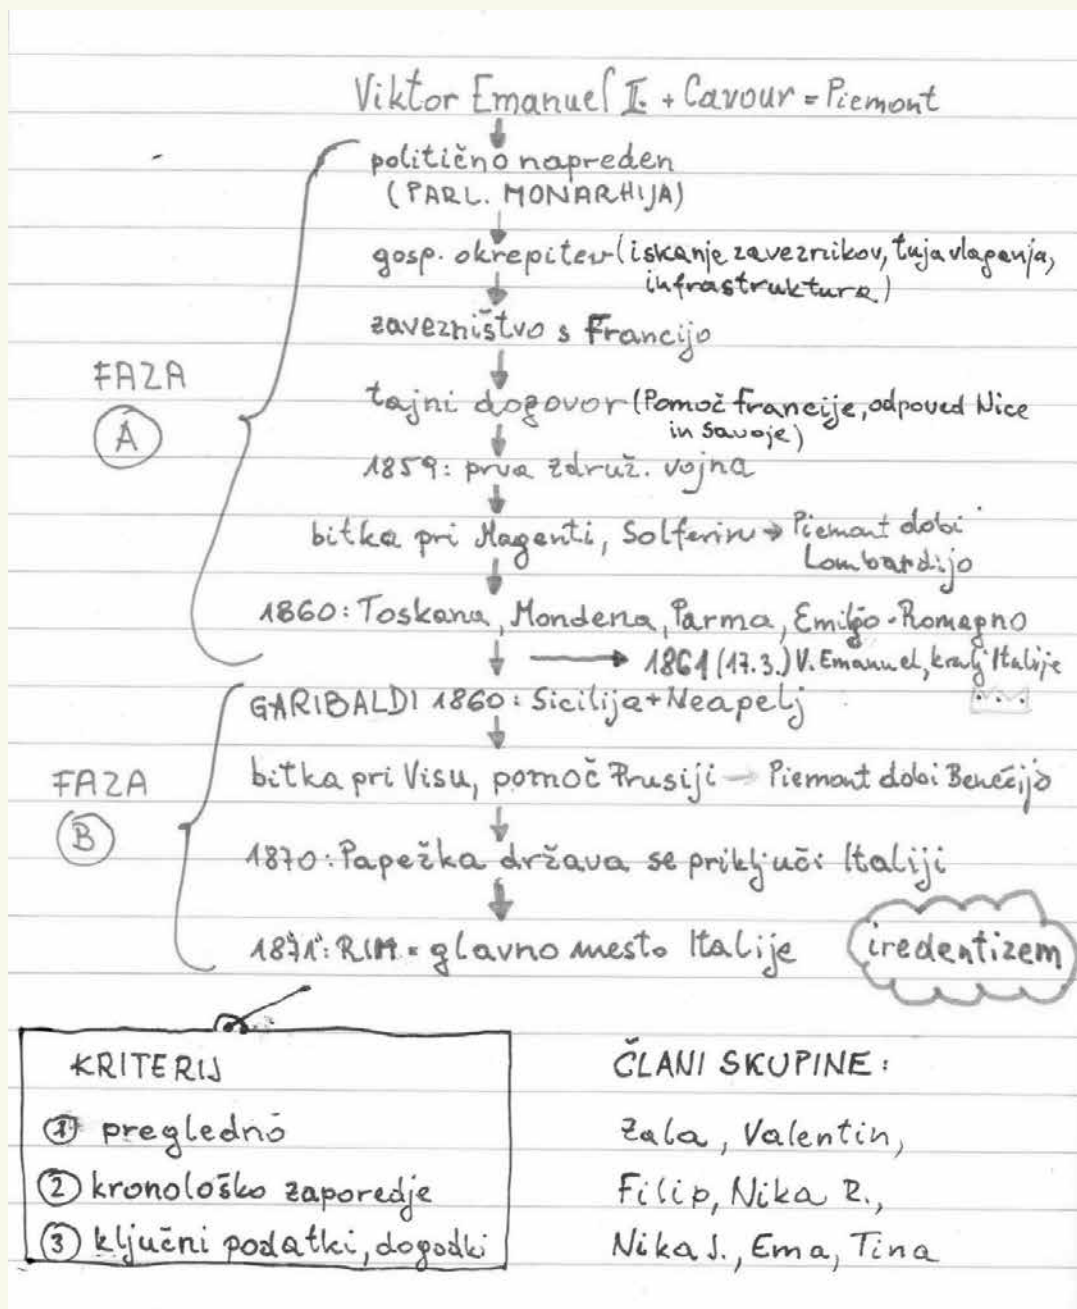 Viktor Emanuel II. + Cavour = Piemont
politično napreden
(PARL. MONARHIJA)
gosp. okrepitev (iskanje zaveznikov, tuja vlaganja,
infrastruktura)
zavezništvo s Francijo
FAZA
A
tajni dogovor (Pomoč Francije, odpoved Nice
in Savoje)
1859: prva združ. vojna
bitka pri Magenti, Solferinu → Piemont dobi
Lombardijo
1860: Toskana, Mondena, Parma, Emiljo-Romagno
→ 1861 (17.3.) V. Emanuel, kralj Italije
GARIBALDI 1860: Sicilija + Neapelj
FAZA
B
bitka pri Visu, pomoč Prusiji — Piemont dobi Benečijo
1870: Papežka država se priključi Italiji
1871: RIM = glavno mesto Italije
iredentizem
KRITERIJ
① pregledno
② kronološko zaporedje
③ ključni podatki, dogodki
ČLANI SKUPINE:
Zala, Valentin,
Filip, Nika R.,
Nika J., Ema, Tina